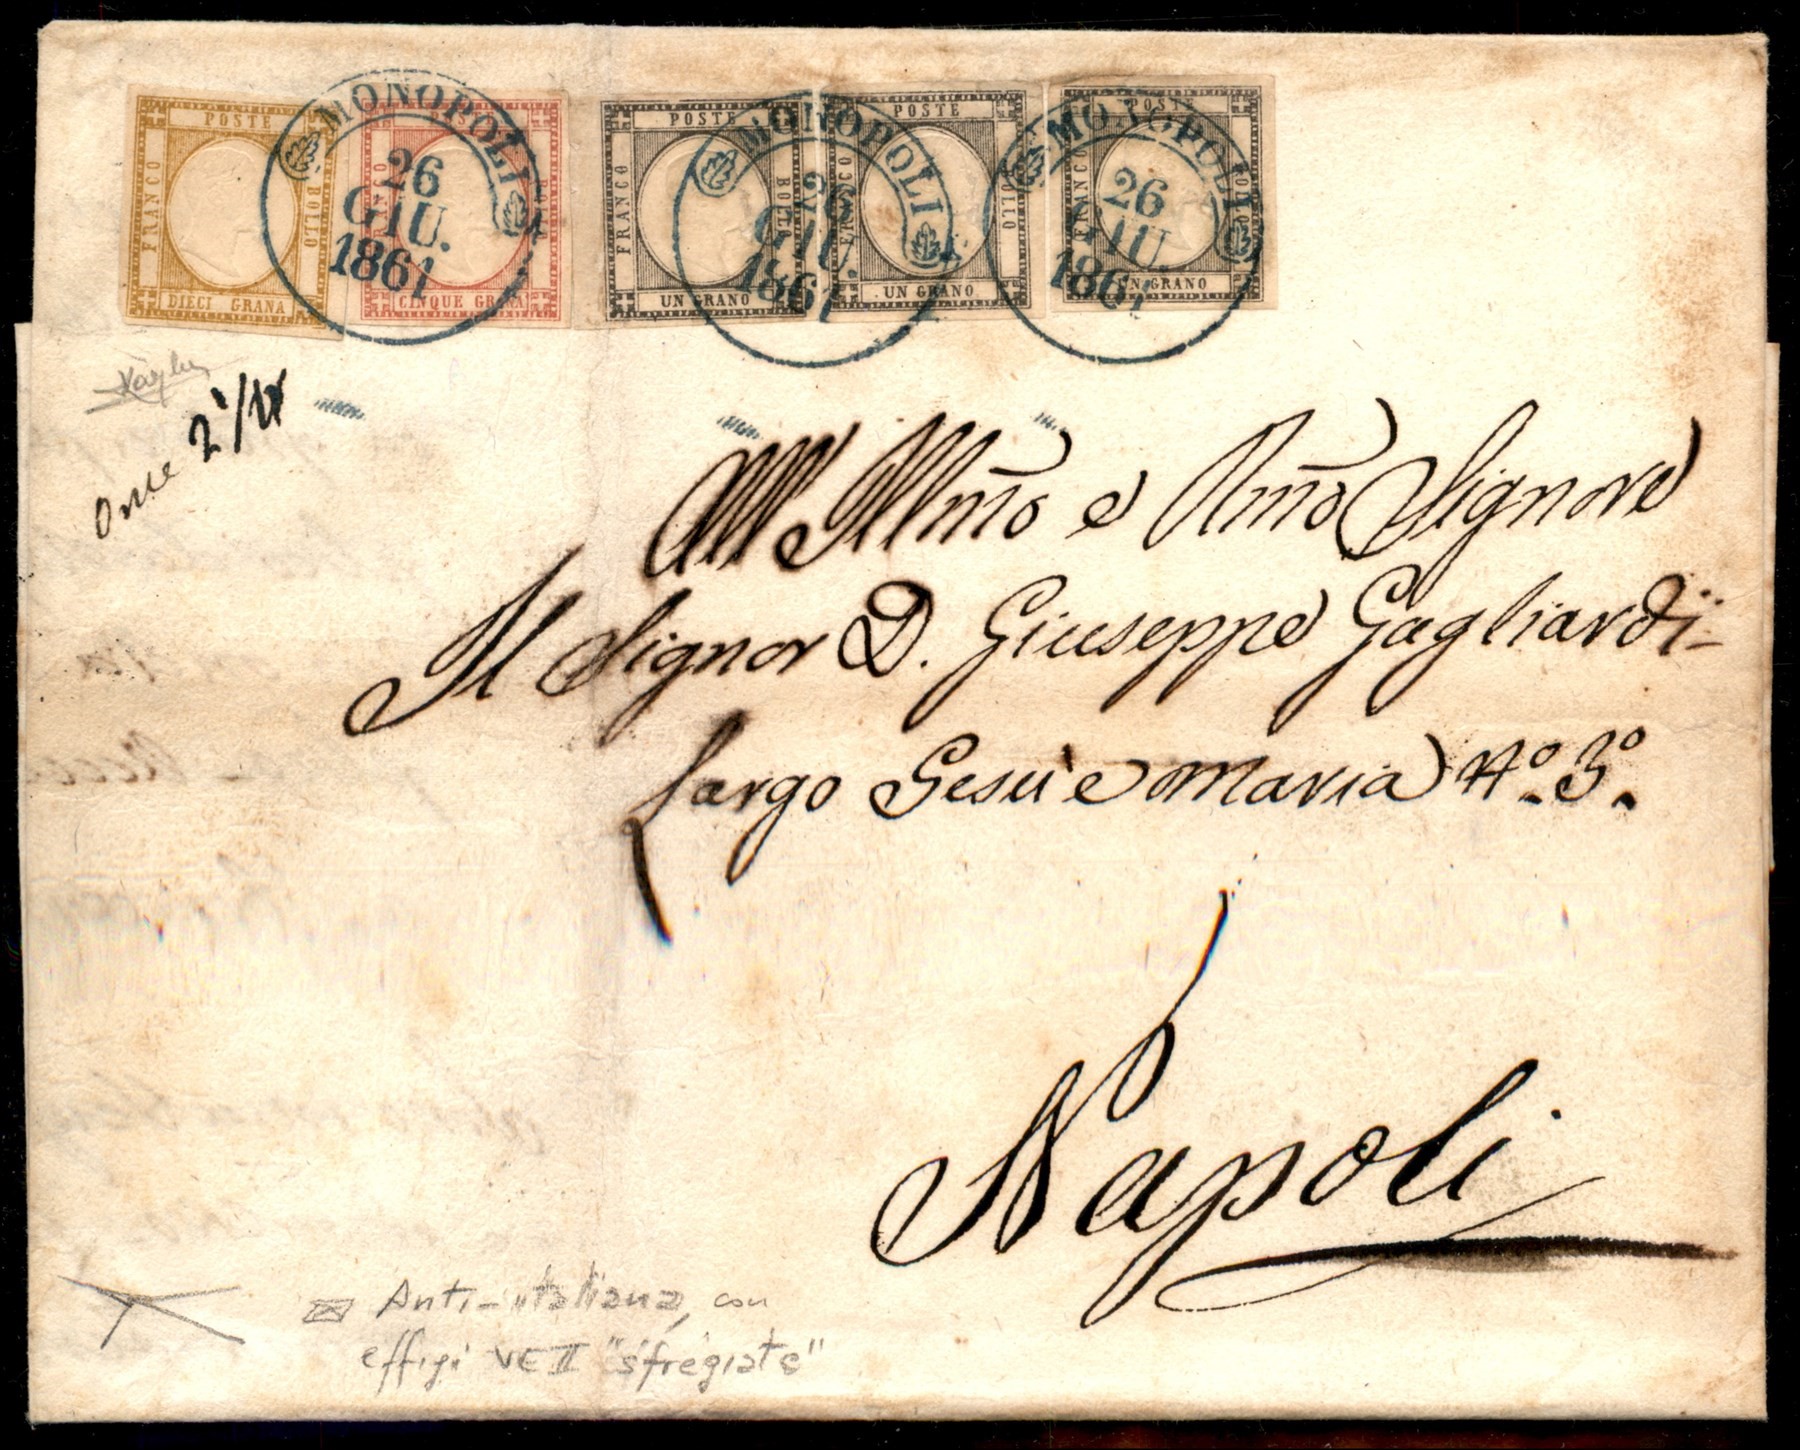 POSTE
FRANCO
BOLLO
DIECI GRANA
FRANCO
BOLLO
CINQUE GRANA
POSTE
FRANCO
BOLLO
UN GRANO
POSTE
FRANCO
BOLLO
UN GRANO
POSTE
FRANCO
BOLLO
UN GRANO
MONOPOLI
26
GIU.
1861
MONOPOLI
26
GIU.
1861
MONOPOLI
26
GIU.
1861
Once 2 1/4
All' Illmo e Rmo Signore
Il Signor D. Giuseppe Gagliardi
Largo Gesù e Maria No. 3o.
Napoli
Anti-italiana, con
effigi VE II "sfregiate"